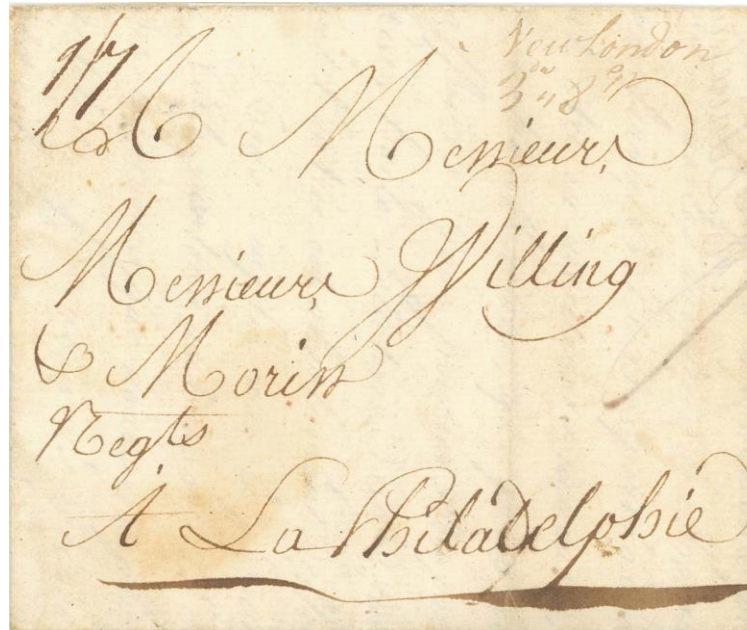 New London
3 dwt 8 gr
1/7
A Messieurs
Messieurs Willing
& Moriss
Negts
A La Philadelphie